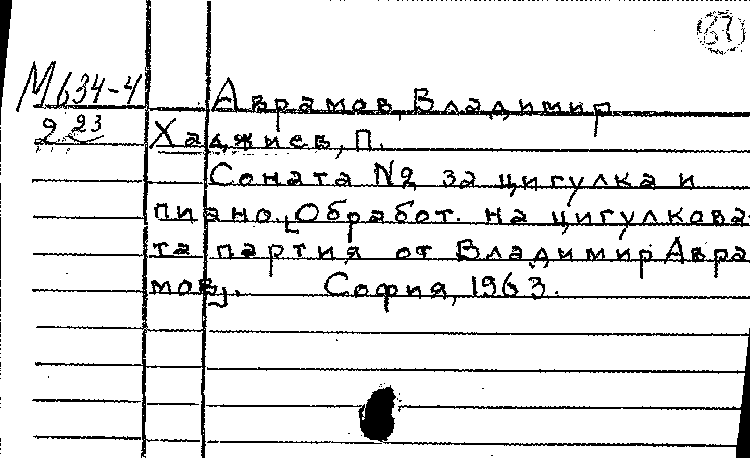 67
М634-4
Аврамов, Владимир
2 23
Хаджиев, П.
Соната №2 за цигулка и
пиано. [Обработ. на цигулкова-
та партия от Владимир Авра
мов]. София, 1963.